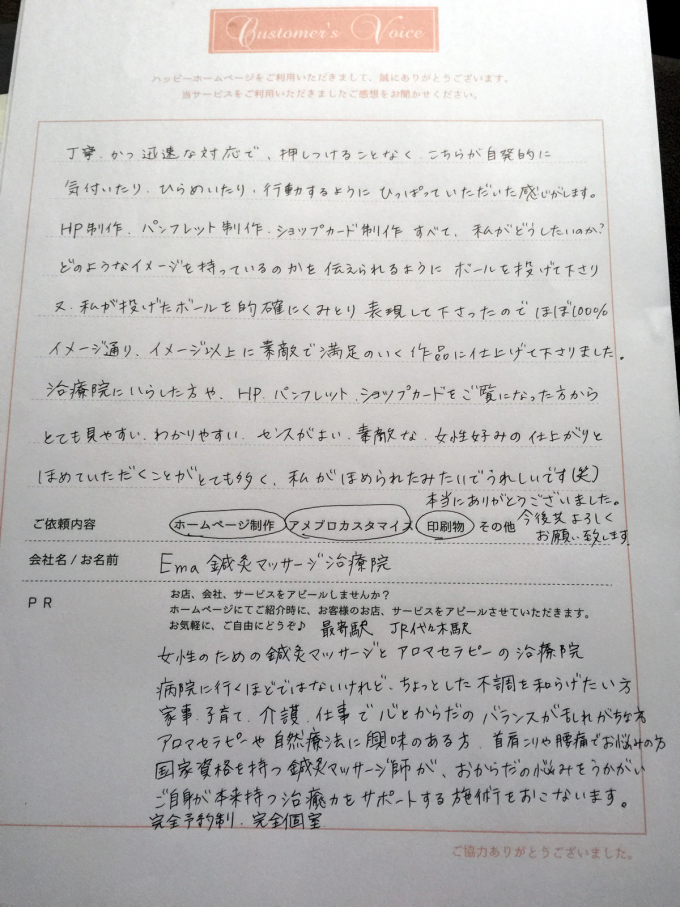 Customer's Voice
ハッピーホームページをご利用いただきまして、誠にありがとうございます。
当サービスをご利用いただきましたご感想をお聞かせください。
丁寧、かつ迅速な対応で、押しつけることなく、こちらが自発的に
気付いたり、ひらめいたり、行動するように ひっぱっていただいた感じがします。
HP制作、パンフレット制作、ショップカード制作 すべて、私がどうしたいのか?
どのようなイメージを持っているのかを 伝えられるように ボールを投げて下さり
又、私が投げたボールを的確にくみとり 表現して下さったので ほぼ100%
イメージ通り、イメージ以上に素敵で満足のいく作品に仕上げて下さりました。
治療院にいらした方や、HP、パンフレット、ショップカードをご覧になった方から
とても見やすい、わかりやすい、センスがよい、素敵な、女性好みの仕上がりと
ほめていただくことがとても多く、私がほめられたみたいでうれしいです(笑)
本当にありがとうございました。
今後共よろしく
お願い致します
ご依頼内容 ホームページ制作 アメブロカスタマイズ 印刷物 その他
会社名 / お名前 Ema 鍼灸マッサージ治療院
PR お店、会社、サービスをアピールしませんか?
ホームページにてご紹介時に、お客様のお店、サービスをアピールさせていただきます。
お気軽に、ご自由にどうぞ♪ 最寄駅 JR代々木駅
女性のための鍼灸マッサージと アロマセラピーの治療院
病院に行くほどではないけれど、ちょっとした不調を和らげたい方
家事、子育て、介護、仕事で心とからだの バランスが乱れがちな方
アロマセラピーや自然療法に興味のある方、首肩こりや腰痛でお悩みの方
国家資格を持つ鍼灸マッサージ師が、おからだの悩みをうかがい
ご自身が本来持つ治癒力をサポートする施術をおこないます。
完全予約制、完全個室
ご協力ありがとうございました。